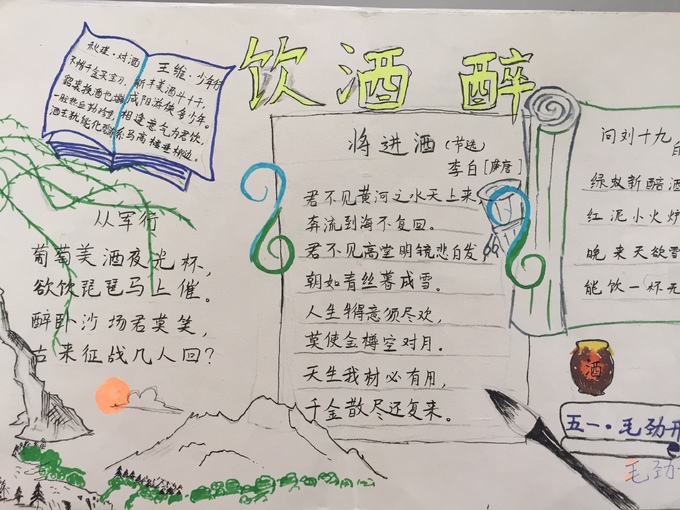 饮酒 醉
秋瑾·对酒
不惜千金买宝刀，
貂裘换酒也堪豪。
一腔热血勤珍重，
洒去犹能化碧涛。
王维·少年行
新丰美酒斗十千，
咸阳游侠多少年。
相逢意气为君饮，
系马高楼垂柳边。
从军行
葡萄美酒夜光杯，
欲饮琵琶马上催。
醉卧沙场君莫笑，
古来征战几人回？
将进酒（节选）
李白[唐]
君不见黄河之水天上来，
奔流到海不复回。
君不见高堂明镜悲白发，
朝如青丝暮成雪。
人生得意须尽欢，
莫使金樽空对月。
天生我材必有用，
千金散尽还复来。
问刘十九
白
绿蚁新醅酒
红泥小火炉
晚来天欲雪
能饮一杯无
酒
五一·毛劲
毛劲